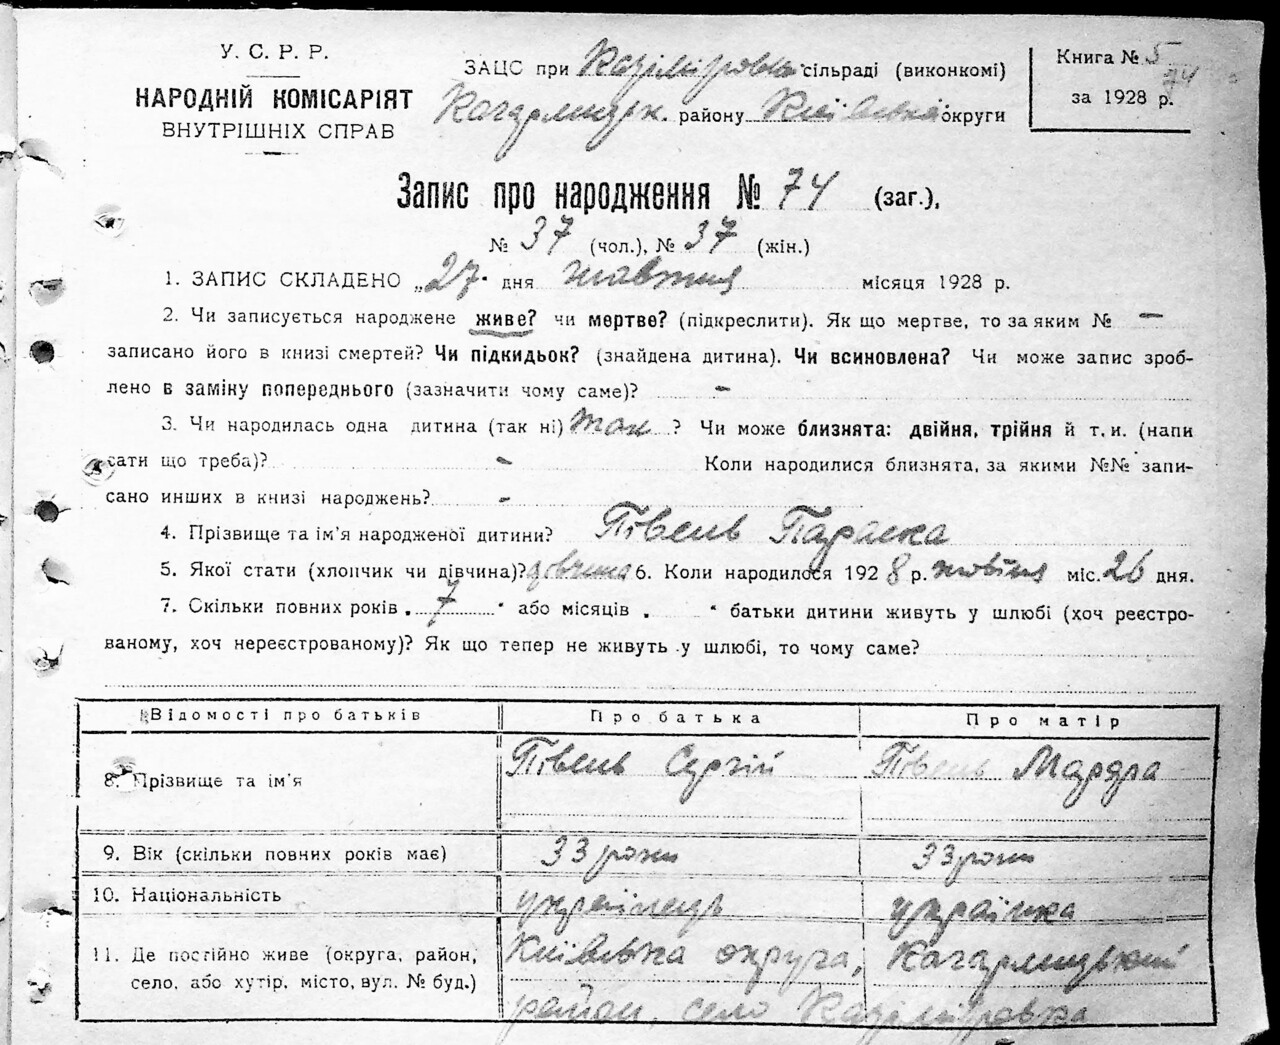 У. С. Р. Р.
НАРОДНІЙ КОМІСАРІЯТ
ВНУТРІШНІХ СПРАВ
ЗАЦС при Казімировка сільраді (виконкомі)
Кагарлицрк. району Київська округи
Книга № 5
74
за 1928 р.
Запис про народження № 74 (заг.),
№ 37 (чол.), № 37 (жін.)
1. ЗАПИС СКЛАДЕНО „27" дня жовтня місяця 1928 р.
2. Чи записується народжене живе? чи мертве? (підкреслити). Як що мертве, то за яким № —
записано його в книзі смертей? Чи підкидьок? (знайдена дитина). Чи всиновлена? Чи може запис зроб-
лено в заміну попереднього (зазначити чому саме)? -
3. Чи народилась одна дитина (так ні) так ? Чи може близнята: двійня, трійня й т. и. (напи
сати що треба)? - Коли народилися близнята, за якими №№ запи-
сано инших в книзі народжень? -
4. Прізвище та ім'я народженої дитини? Півень Параска
5. Якої стати (хлопчик чи дівчина)? дівчина 6. Коли народилося 1928 р. жовтня міс. 26 дня.
7. Скільки повних років „ 7 " або місяців „ " батьки дитини живуть у шлюбі (хоч реєстро-
ваному, хоч нереєстрованому)? Як що тепер не живуть у шлюбі, то чому саме?
Відомості про батьків Про батька Про матір
8. Прізвище та ім'я Півень Сергій Півень Мар
9. Вік (скільки повних років має) 33 роки 33 роки
10. Національність українець українка
11. Де постійно живе (округа, район, Київська округа, Кагарлицький
село, або хутір, місто, вул. № буд.) район, село Казіміровка